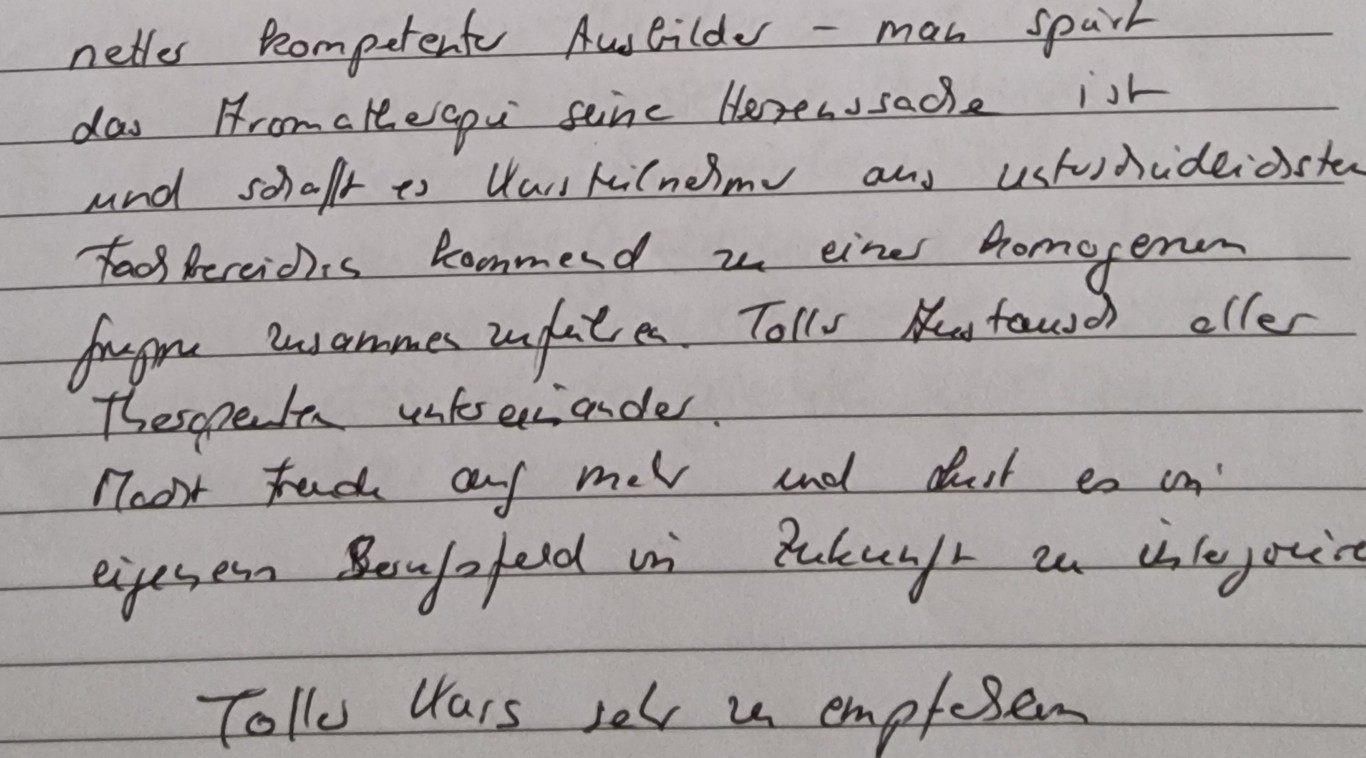 netter kompetenter Ausbilder - man spürt
das Aromatherapie seine Herzenssache ist
und schafft es Kursteilnehmer aus unterschiedlichsten
Fachbereichen kommend zu einer homogenen
Gruppe zusammenzuführen. Toller Austausch aller
Therapeuten untereinander.
Macht Freude auf mehr und Lust es im
eigenen Berufsfeld in Zukunft zu integriere
Toller Kurs sehr zu empfehlen